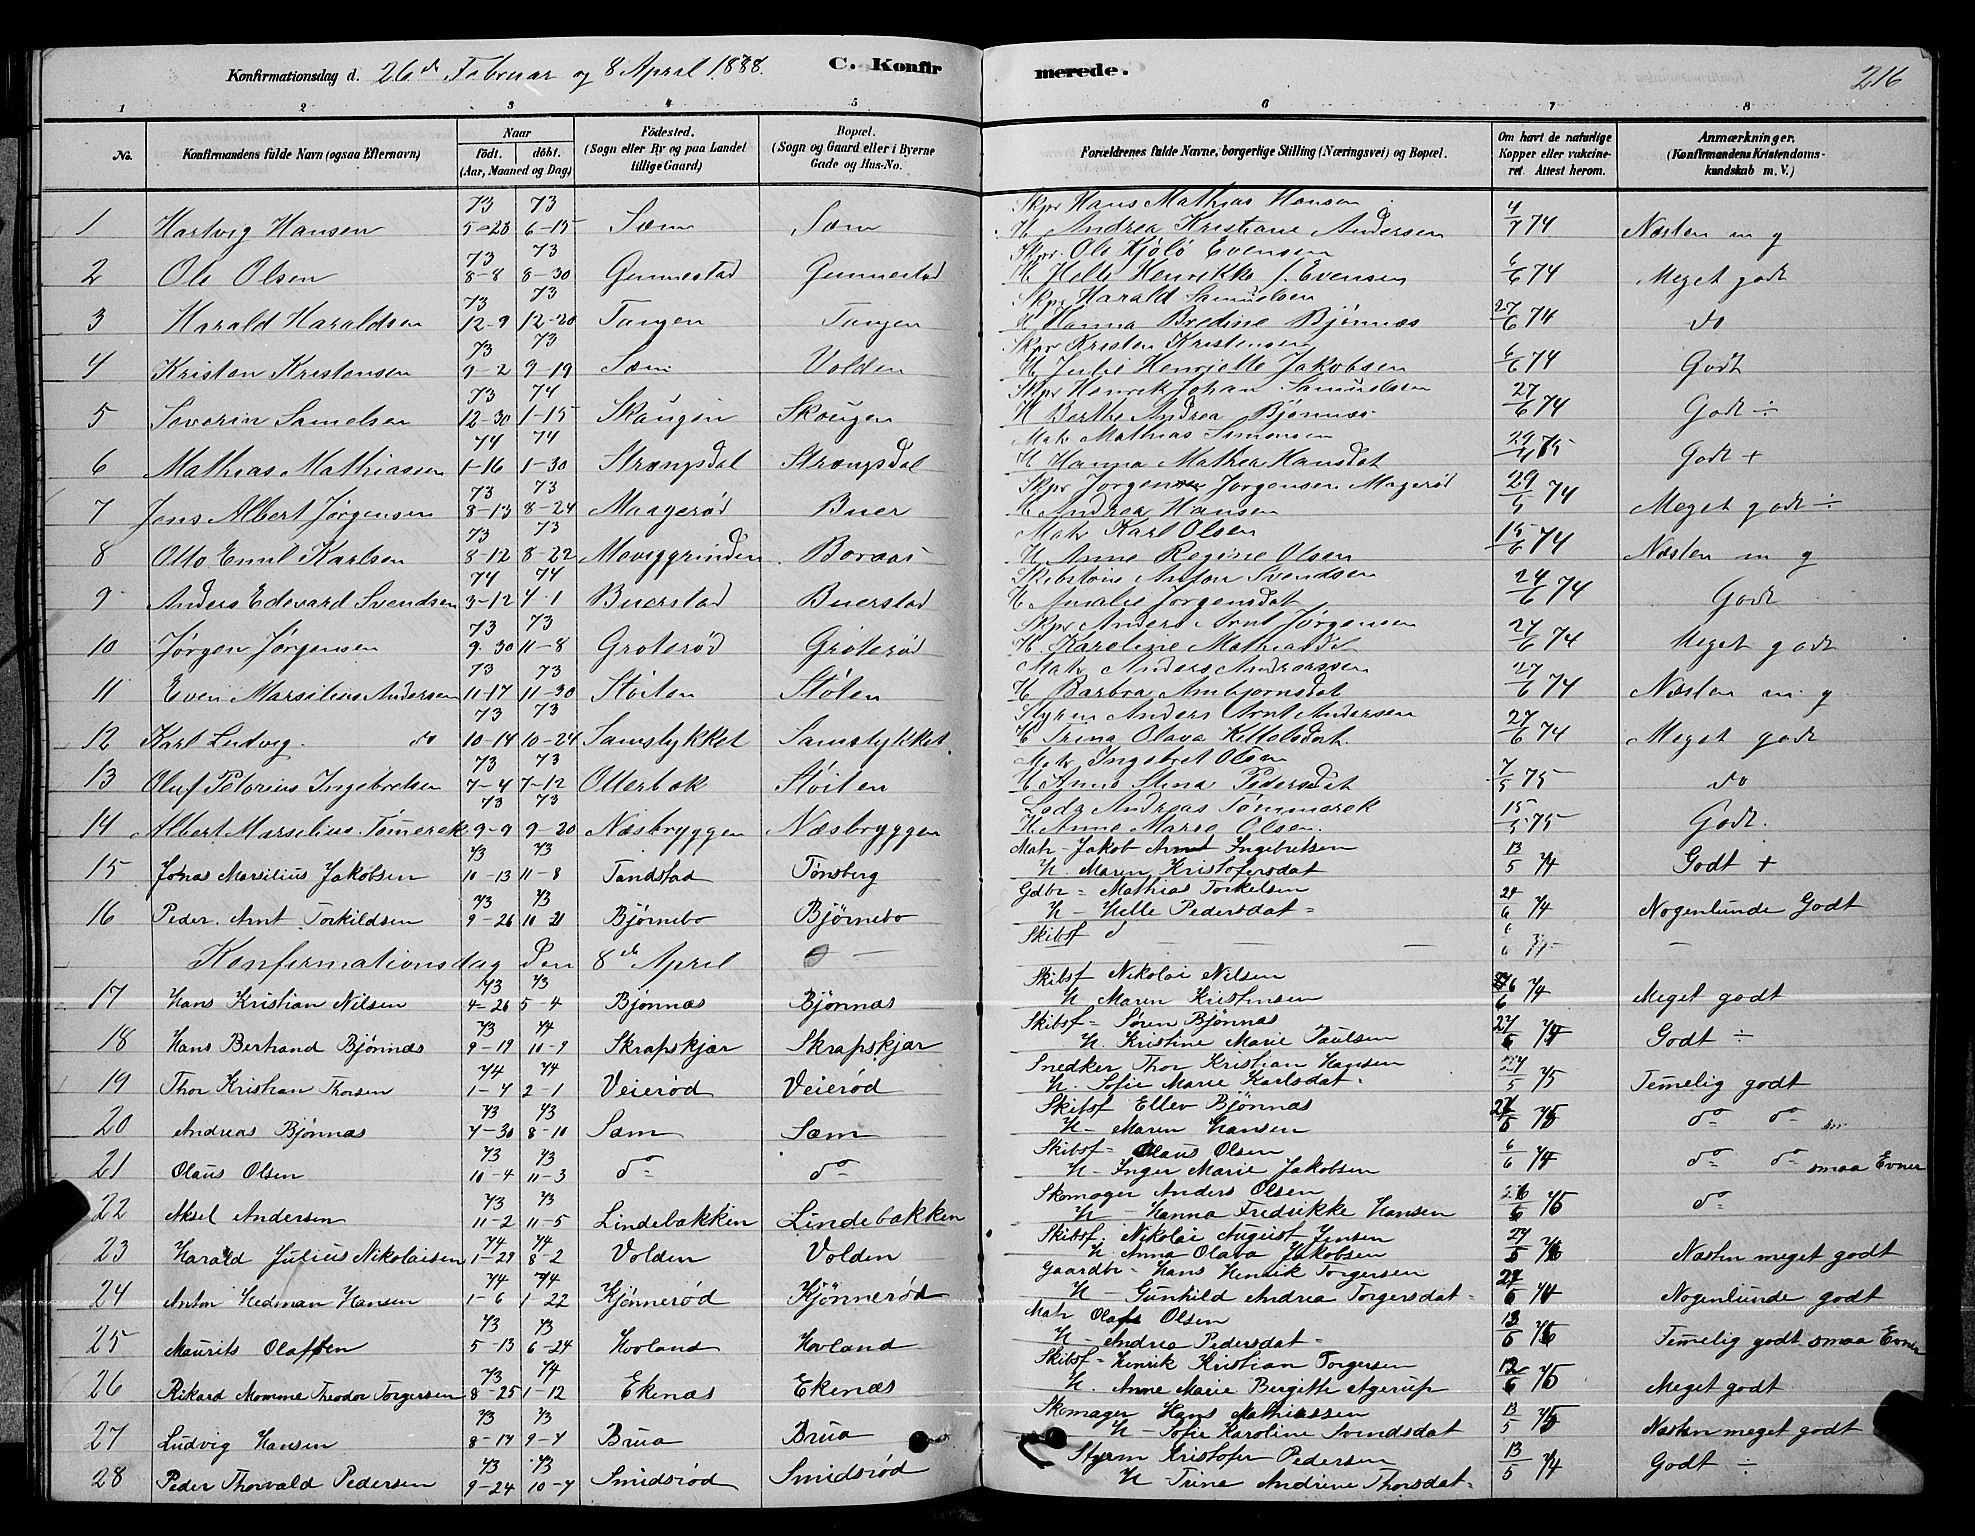 Konfirmationsdag d. 26de Februar og 8 April 1888. C. Konfirmerede. 216
1 2 3 4 5 6 7 8
No. Konfirmandens fulde Navn (ogsaa Efternavn) Naar födt. döbt. (Aar, Maaned og Dag) Födested. (Sogn eller By og paa Landet tillige Gaard) Bopæl. (Sogn og Gaard eller i Byerne Gade og Hus-No. Forældrenes fulde Navne, borgerlige Stilling (Næringsvei) og Bopæl. Om havt de naturlige Kopper eller vakcineret Attest herom. Anmærkninger. (Konfirmandens Kristendomskundskab m. V.)
73 73 Skpr Hans Mathias Hansen
1 Hartvig Hansen 5-28 6-15 Sæm Sæm H Andrea Kristiane Andersen 4/7 74 Næsten m g
73 73 Skpr. Ole Kjölö Evensen
2 Ole Olsen 8-8 8-30 Gunnestad Gunnestad H Helle Henrikke J. Evensen 6/6 74 Meget godt
73 73 Skpr Harald Samuelsen
3 Harald Haraldsen 12-9 12-20 Tangen Tangen H Hanna Bredine Bjönnæs 27/6 74 do
73 73 Skpr Kristen Kristensen
4 Kristen Kristensen 9-2 9-19 Sæm Volden H Julie Henriette Jakobsen 6/6 74 Godt
73 74 Skpr Henrik Johan Samuelsen
5 Severin Samelsen 12-30 1-15 Skaugen Skougen H Berthe Andrea Bjönnæs 27/6 74 Godt ÷
74 74 Matr Mathias Simensen
6 Mathias Mathiassen 1-16 1-30 Strængsdal Strængsdal H Hanna Mathea Hansdat 75 Godt +
73 73 Skpr Jorgen Jorgensen Magerød
7 Jens Albert Jørgensen 8-13 8-24 Maagerød Buer H Andrea Hansen 29/5 74 Meget godt ÷
73 73 Matr Karl Olsen
8 Otto Emil Karlsen 8-12 8-22 Moviggrinden Boraas H Anne Regine Olsen 15/6 74 Næsten m g
74 74 Anton Svendsen
9 Anders Edevard Svendsen 3-12 4-1 Buerstad Buerstad H Amalie Jorgensdat 24/6 74 Godt
73 73 Skpr Anders Arnt Jørgensen
10 Jørgen Jørgensen 9-30 11-8 Groterød Groterød H Kareline Mathiasdat 27/6 74 Meget godt
73 73 Matr Anders Andreassen
11 Even Marselius Andersen 11-17 11-30 Støiten Støten H Barbra Ambjornsdat 27/6 74 Næsten m. g
73 73 Styrm Anders Arnt Andersen
12 Karl Ludvig do 10-14 10-24 Samstykket Samstykket. H Trina Olava Kittelsdat. 27/6 74 Meget godt
73 73 Matr Ingebret Olsen
13 Oluf Petorius Ingebretsen 7-4 7-12 Otterbæk Støiten H Anne Stina Pedersdat 7/5 75 do
73 73 Lods Andreas Tömmerek
14 Albert Marselius Tömerek 9-9 9-20 Næsbryggen Næsbryggen H Anne Marie Olsen. 15/5 75 Godt.
73 73 Matr Jakob Arnt Ingebretsen
15 Jonas Marsilius Jakobsen 10-13 11-8 Tandstad Tønsberg H. Maren Kristofersdat 13/5 74 Godt +
73 73 Gdbr = Mathias Torkelsen
16 Peder. Arnt Torkildsen 9-26 10 21 Bjørnebo Bjørnebo H - Helle Pedersdat = 24/6 74 Nogenlunde Godt
Skibsf
Konfirmationsdag Den 8de April
73 73 Skibsf Nikolai Nilsen
17 Hans Kristian Nilsen 4-26 5-4 Bjönnæs Bjönnæs H Maren Kristensen 74 Meget godt
73 74 Skibsf= Sören Bjönnæs
18 Hans Bertrand Bjönnæs 9-19 10-9 Skrapskjær Skrapskjær H. Kristine Marie Paulsen 27/6 74 Godt ÷
74 74 Snedker Thor Kristian Hansen
19 Thor Kristian Thorsen 1-4 2-1 Veierød Veierød H. Sofie Marie Karlsdat. 27/5 75 Temelig godt
73 73 Skibsf Ellev Bjönnæs
20 Andreas Bjönnæs 7-30 8-10 Sæm Sæm H - Maren Hansen 75 do do
73 73 Skibsf= Olaus Olsen
21 Olaus Olsen 10-4 11-3 do do H - Inger Marie Jakobsen 6/6 74 do do smaa Evner
73 73 Skomager Anders Olsen
22 Aksel Andersen 11-2 11-5 Lindebakken Lindebakken H - Hanna Fredrikke Hansen 75 do
74 74 Skibsf. Nikolai August Jensen
23 Harald Julius Nikolaisen 1-29 8-2 Volden Volden H. Anna Olava Jakobsen Næsten meget godt
74 74 Gaardbr - Hans Henrik Torgersen
24 Anton Hedman Hansen 1-6 1-22 Kjönnerød Kjönnerød H - Gunhild Andrea Torgersdat 74 Nogenlunde godt
73 73 Matr Olaf Olsen
25 Maurits Olafsen 5-13 6-24 Hovland Hovland H - Andrea Pedersdat - Temelig godt smaa Evner
73 74 Skibsf= Henrik Kristian Torgersen
26 Rikard Momme Theodor Torgersen 8-25 1-12 Ekenæs Ekenæs H. Anne Marie Bergitte Agerup 75 Meget godt
73 73 Skomager Hans Mathiassen
27 Ludvig Hansen 8-14 9-7 Brua Brua H - Sofie Karoline Svendsdat 13/5 75 Næsten meget godt
73 73 Styrm Kristofer Pedersen
28 Peder Thorvald Pedersen 9-24 10-7 Smidsrød Smidsrød H Trine Andrine Thorsdat 13/5 74 Godt ÷